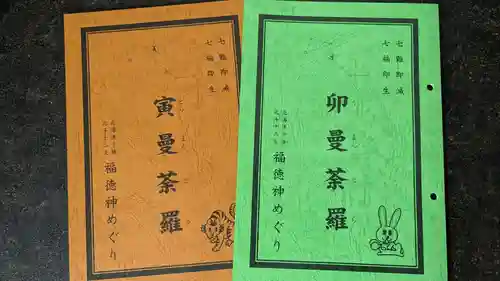 七難即滅
七福即生
寅曼荼羅
福徳神めぐり
七難即滅
七福即生
卯曼荼羅
福徳神めぐり